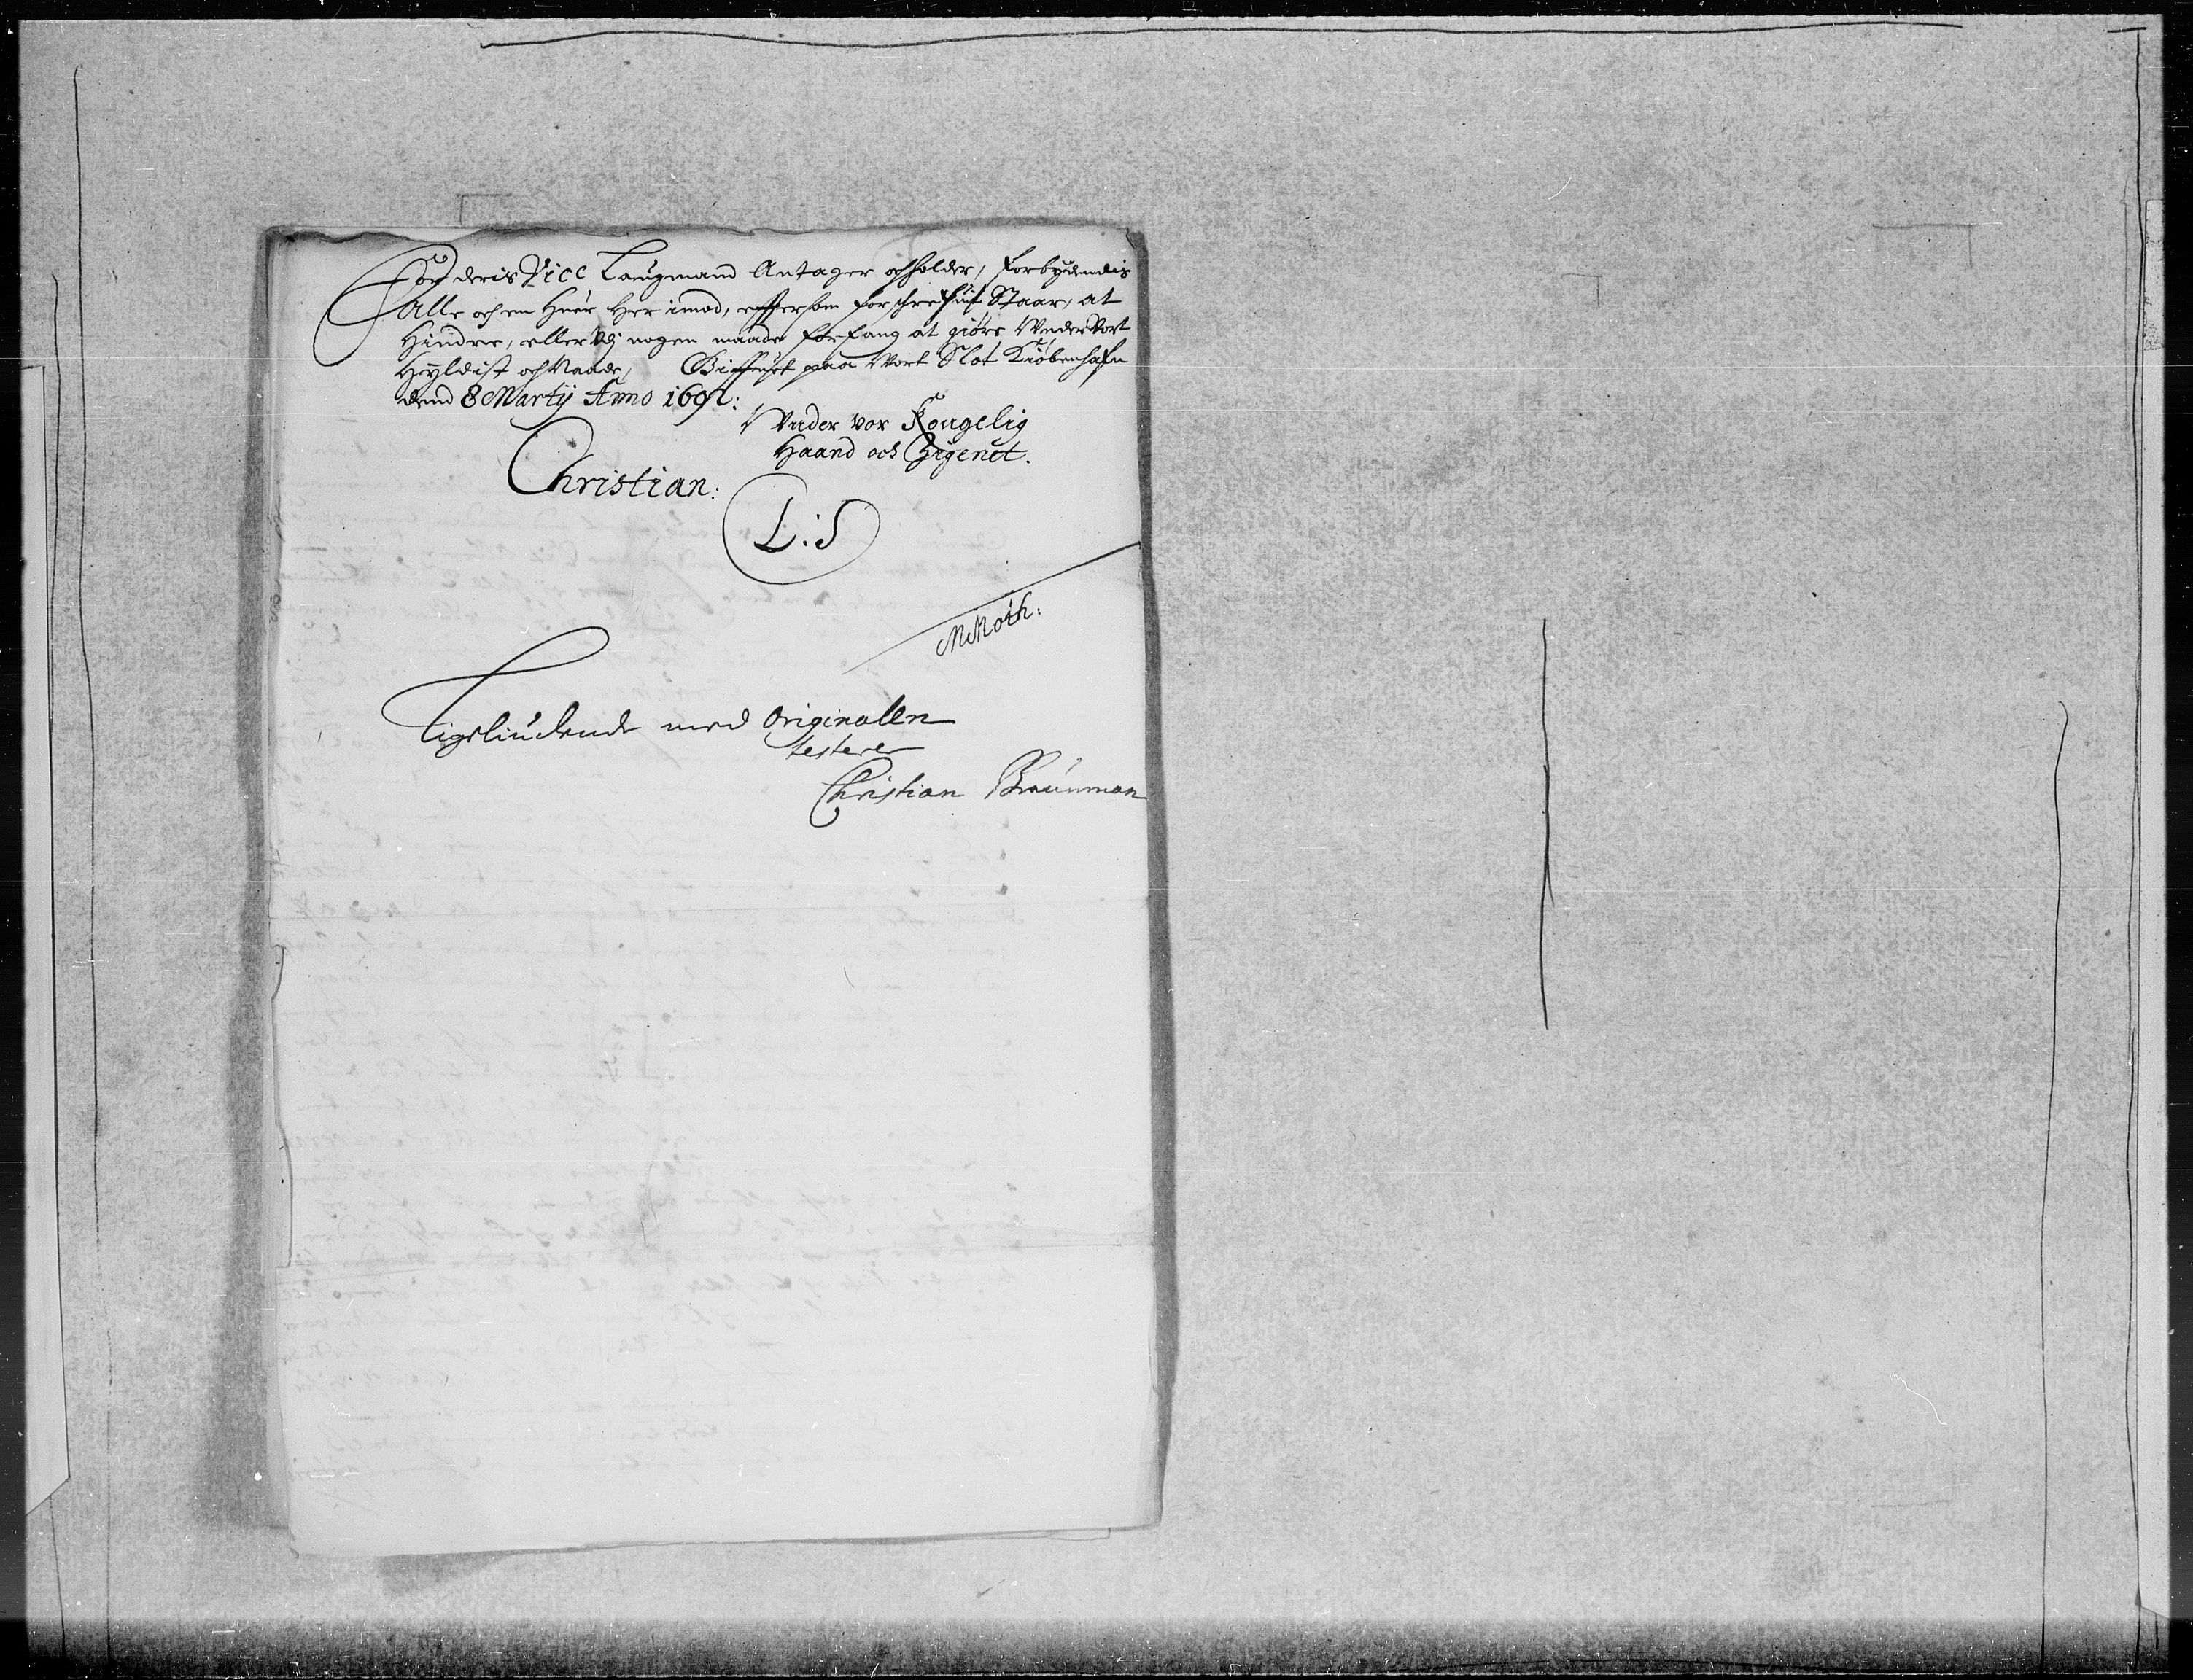 For deris Vice Laugmand Antager och holder, forbydendis
alle och en Huer Her imod, eftersom forschrefuit Staar, at
Hindre, eller Vdj nogen maade forfang at giøre Vnder Vort
Hyldist och Naade, Giffuet paa Vort Slot Kiøbenhafn
dend 8 Martij Anno 1692:
Vnder vor Kongelig
Haand och Zigenet.
Christian:
L:S
M Moth:
Ligeliudende med Originalen
testerer
Christian Braunman